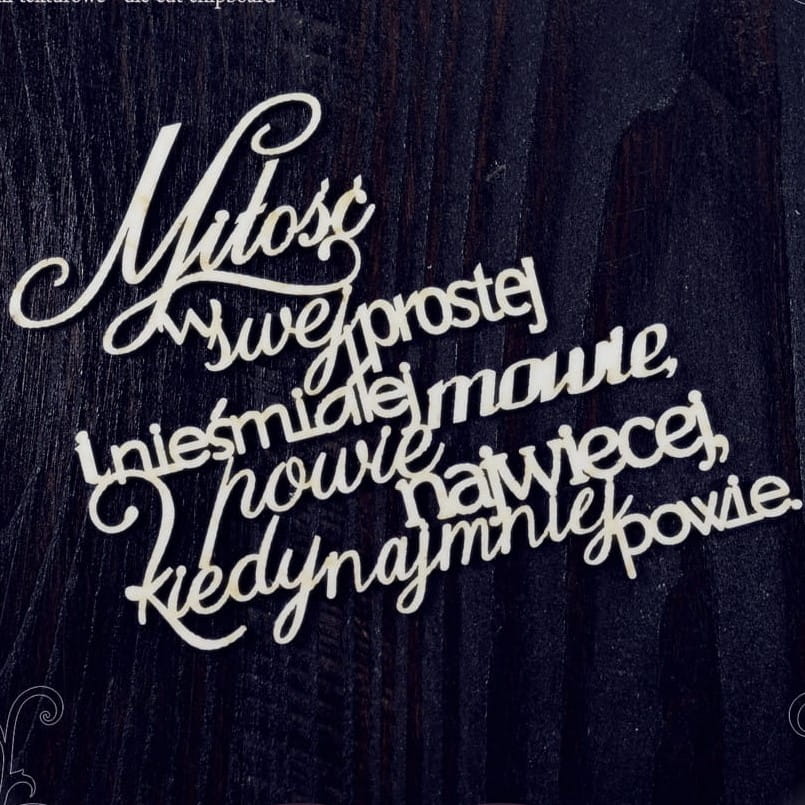 tekturowe - die cut chipboard
Miłość
w swej prostej
i nieśmiałej mowie,
powie najwięcej,
kiedy najmniej powie.